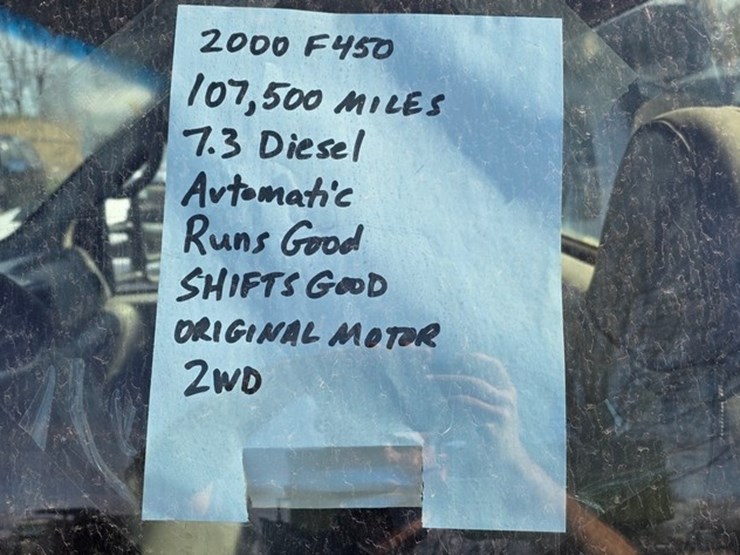 2000 F450
107,500 MILES
7.3 Diesel
Automatic
Runs Good
SHIFTS GOOD
ORIGINAL MOTOR
2WD